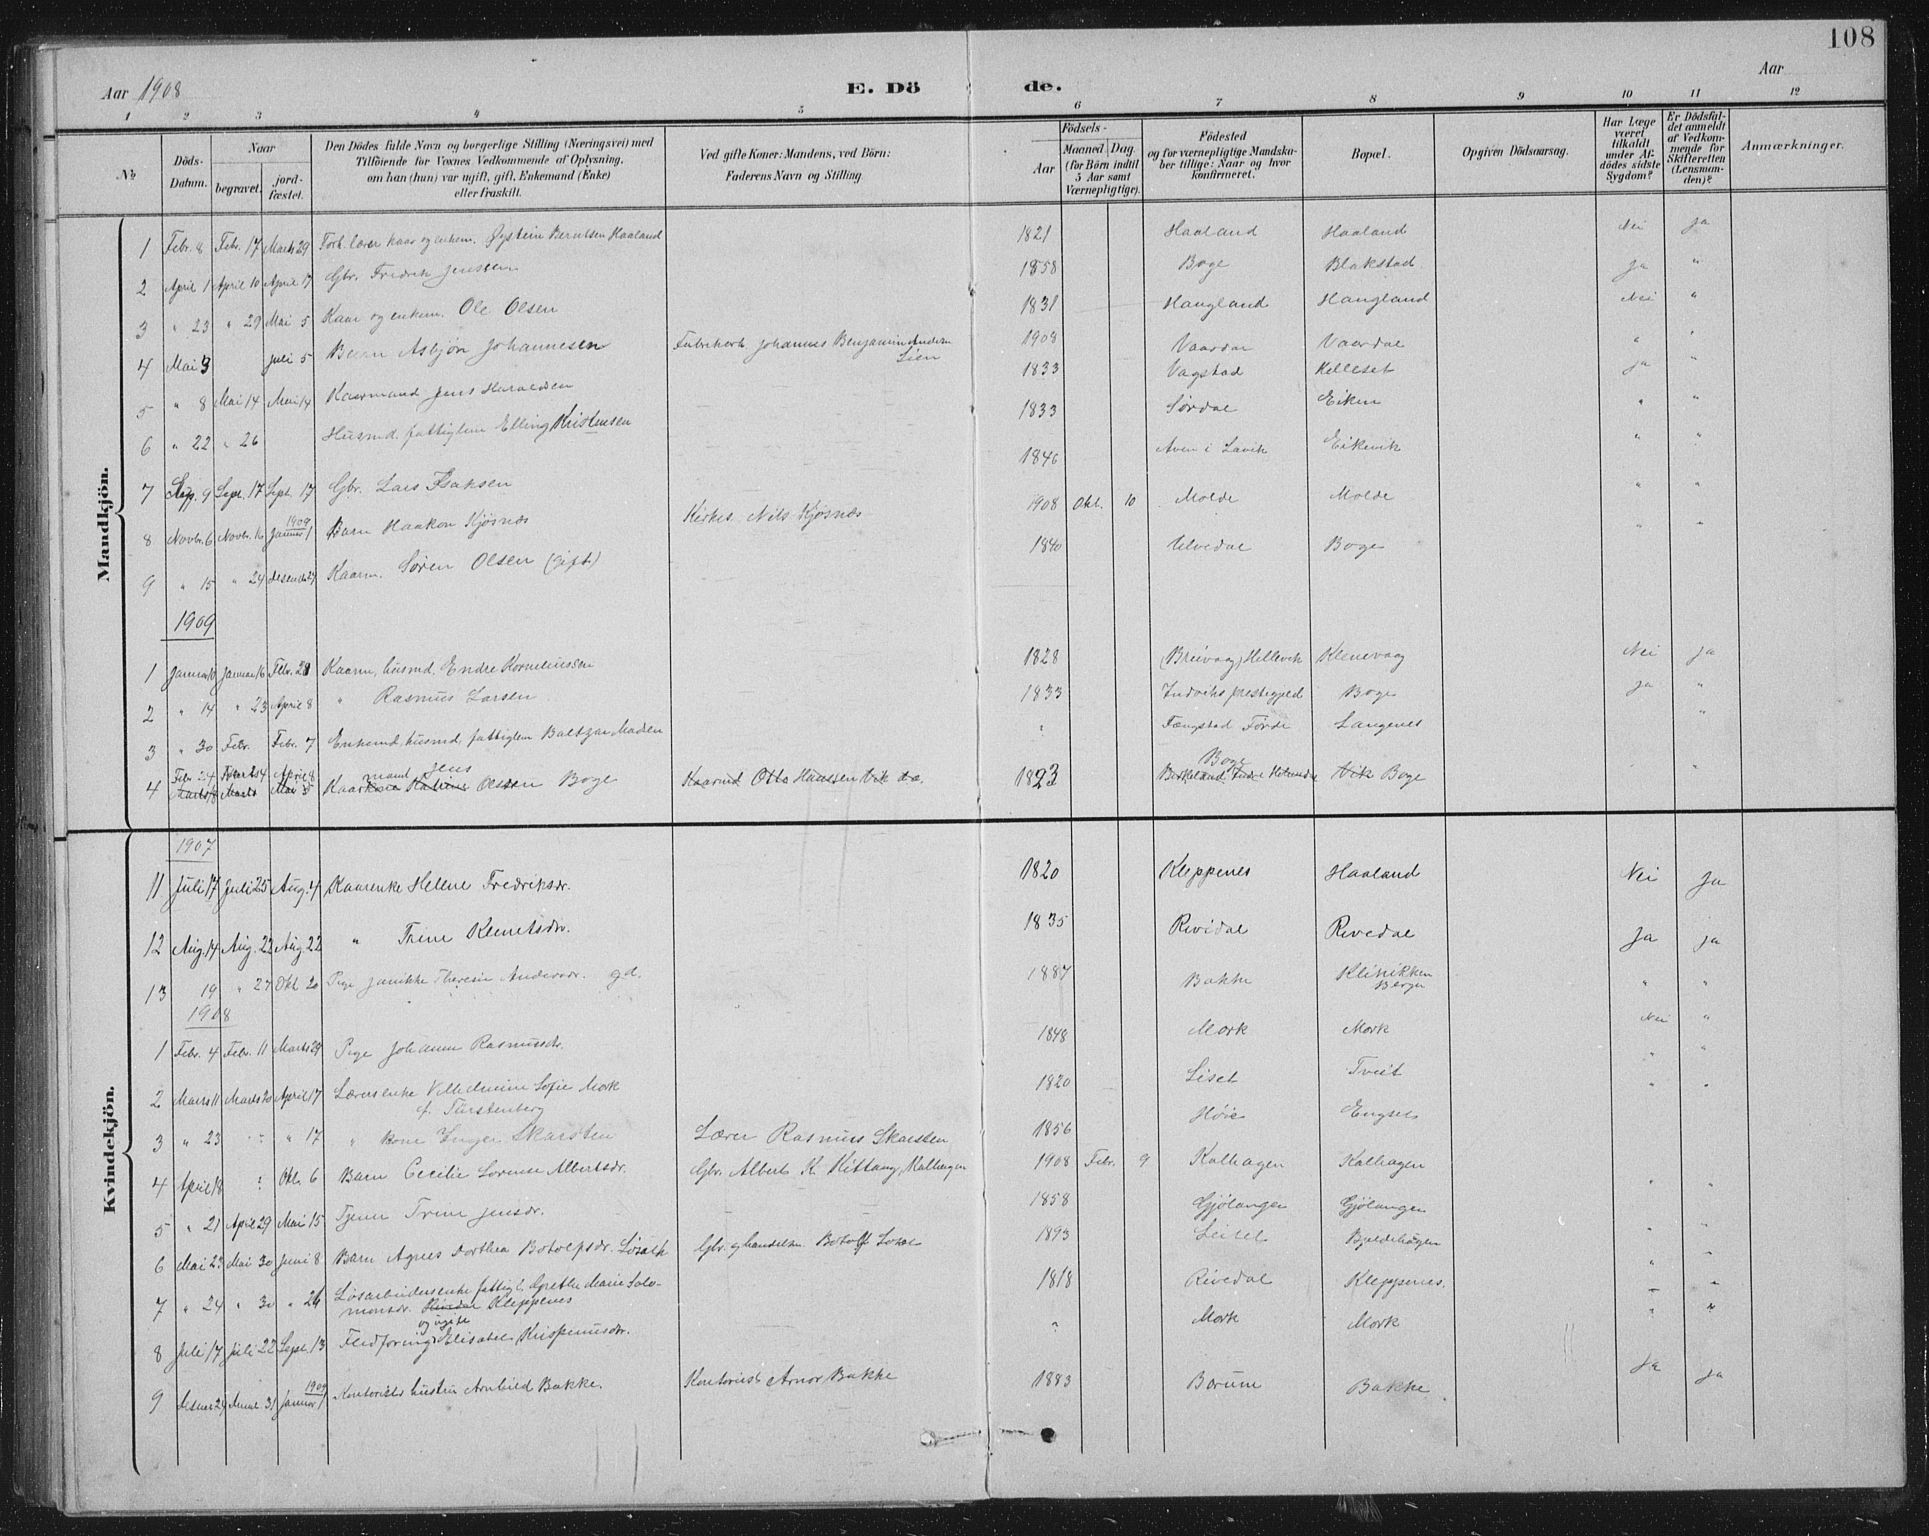 108
Aar 1908
E. Dö de.
Aar
1 2 3 4 5 6 7 8 9 10 11 12
№
Döds-Datum.
Naar
begravet.
jord-fæstet.
Den Dödes fulde Navn og borgerlige Stilling (Næringsvei) med
Tilföiende for Voxnes Vedkommende af Oplysning,
om han (hun) var ugift, gift, Enkemand (Enke)
eller fraskilt.
Ved gifte Koner: Mandens, ved Börn:
Faderens Navn og Stilling.
Födsels-
Aar
Maaned Dag
(for Börn indtil
5 Aar samt
Værnepligtige).
Födested
og for værnepligtige Mandska-
ber tillige: Naar og hvor
konfirmeret.
Bopæl.
Opgiven Dödsaarsag.
Har Læge
været
tilkaldt
under Af-
dödes sidste
Sygdom?
Er Dödsfal-
det anmeldt
af Vedkom-
mende for
Skifteretten
(Lensman-
den)?
Anmærkninger.
Mandkjön.
1 Febr. 8 Febr. 17 Marts 29 Forh. lærer kaar og enkem. Øystein Berntsen Haaland 1821 Haaland Haaland Nei Ja
2 April 1 April 10 April 17 Gbr. Fredrik Jenssen 1858 Boge Blakstad Ja "
3 " 23 " 29 Mai 5 Kaar og enkem. Ole Olsen 1831 Haugland Haugland Nei "
4 Mai 3 Juli 5 Barn Asbjøn Johannesen Fabrikarb. Johannes Benjamin Anders. Lien 1908 Vaardal Vaardal " "
5 " 8 Mai 14 Mai 14 Kaarmand Jens Haraldsen 1833 Vagstad Kelleset Ja "
6 " 22 " 26 Husmd. fattiglem Elling Kristensen 1833 Sørdal Eiken " "
7 Sep. 9 Sept. 17 Sept. 17 Gbr. Lars Isaksen 1846 Aven i Lavik Eikevik " "
8 Novbr. 6 Novbr. 16 1909 Januar 1 Barn Haakon Kjøsnæs Kirkes. Nils Kjøsnæs 1908 Okt. 10 Molde Molde " "
9 " 15 " 24 Desemb. 27 Kaarm. Søren Olsen (Gift) 1840 Ulvedal Boge " "
1909
1 Januar 10 Januar 16 Febr. 28 Kaarm, husmd. Endre Korneliussen 1828 (Breivaag) Hellevik Klenevaag Nei Ja
2 " 14 " 23 April 8 " Rasmus Larsen 1833 Indviks prestegjeld Boge Ja "
3 " 30 Febr. Febr. 7 Enkemd, husmd, fattiglem Baltzar Madsen " Fængstad Førde Langenes "
4 Febr. 24 Marts 4 April 8 Kaarmand Jens Olsen Boge Kaarmd Otto Hansen Vik 1823 Boge Vik Boge " "
Marts 18 Marts Mai 5
Kvindekjön.
1907
11 Juli 17 Juli 25 Aug. 4 Kaarenke Helene Fredriksdr. 1820 Kleppenes Haaland Nei Ja
12 Aug. 14 Aug. 22 Aug 22 " Trine Klemetsdr. 1835 Rividal Rivedal Ja Ja
13 19 " 27 Okt 20 Pige Janikke Theresie Andersdr. gd. 1887 Bakke Klinikken Bergen " "
1908
1 Febr. 4 Febr. 11 Marts 29 Pige Johanne Rasmusdr. 1848 Mork Mork Nei "
2 Marts 11 Marts 20 April 17 Lærerenke Vilhelmine Sofie Mork 1820 Liset Tveit " "
f. Fürstenberg
3 " 23 " " 17 " kone Inger Skarsten Lærer Rasmus Skarsten 1856 Høie Engset " "
4 April 18 " Okt. 6 Barn Cecilie Lorense Albertsdr. Gbr. Albert K. Kittang, Kalhagen 1908 Febr. 9 Kalhagen Kalhagen
5 " 21 April 29 Mai 15 Tjener Trine Jensdr. 1858 Gjølanger Gjølanger " "
6 Mai 23 Mai 30 Juni 8 Barn Agnes Dorthea Botolfsdr. Gbr. og handelsm. Botolf 1893 Leitet " "
7 " 24 " 30 " 26 Løsarbeiderenke fattigl. Grethe Marie Salo- 1818 Rivedal Kleppenes. " "
monsdr. Rivedal Kleppenes
8 Juli 17 Juli 22 Sept. 13 Fledføring og ugift Elisabet Krispinusdr. " Mork Mork " "
9 29 31 1909 Januar 1 Kontorists hustru Arnhild Bakke. Kontorist Arnor Bakke 1883 Bærum Bakke Ja Ja